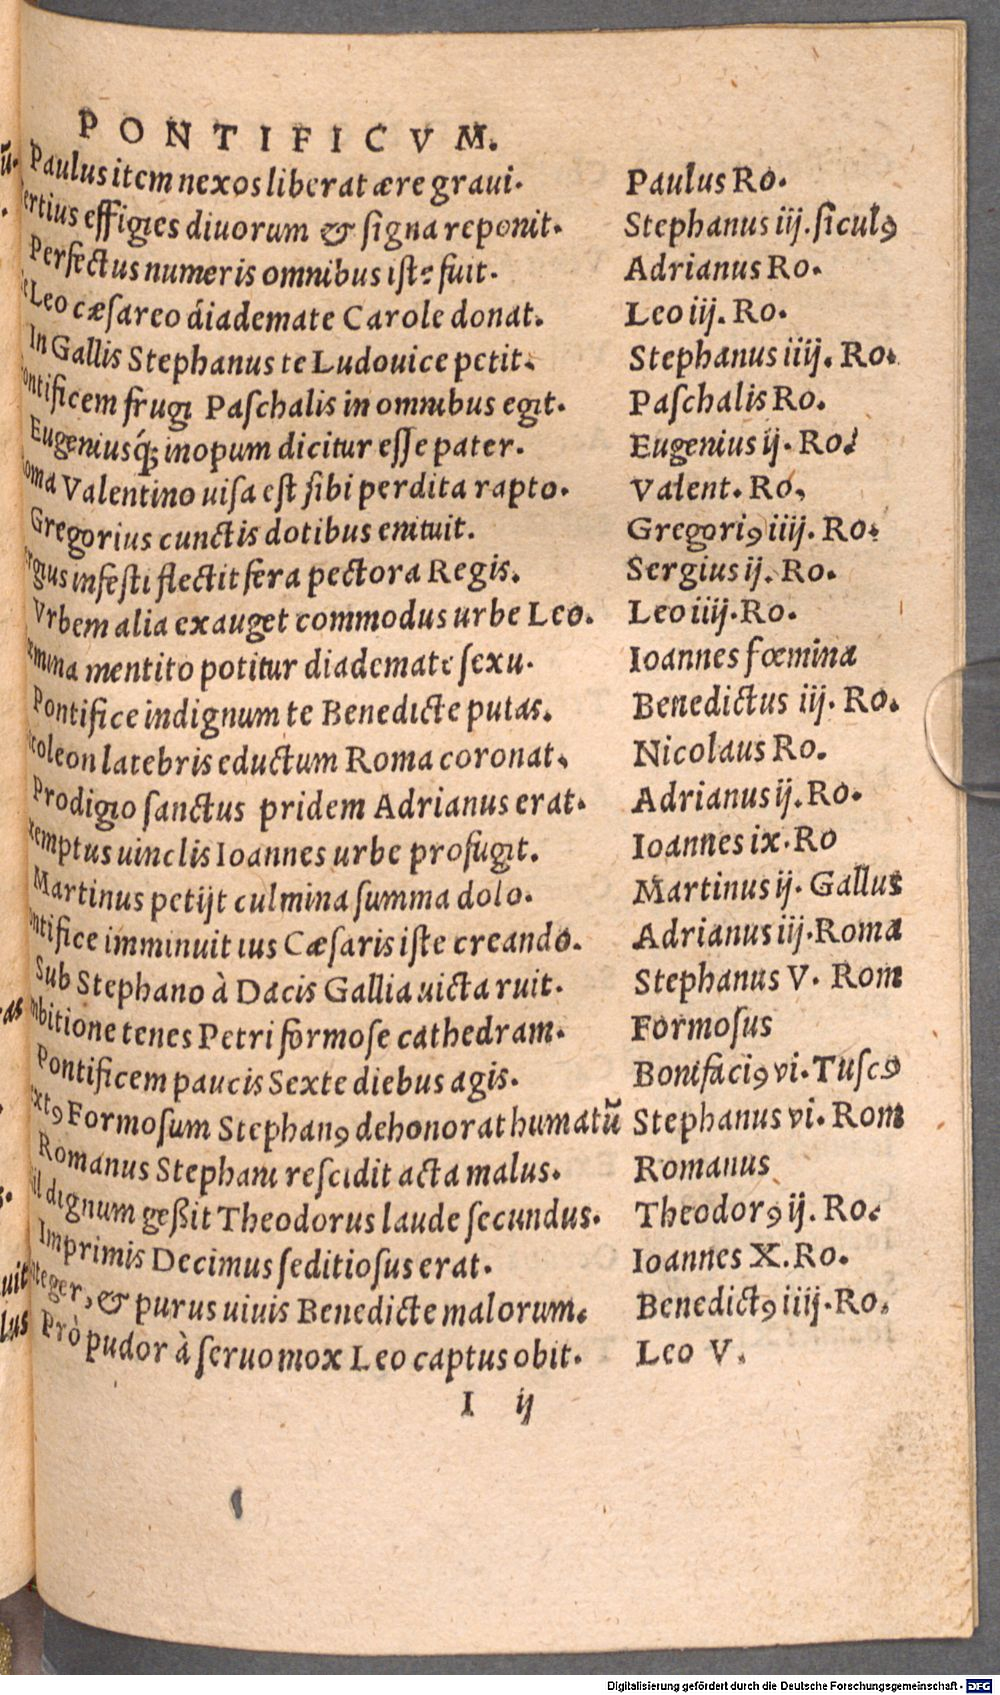 PONTIFICVM.
Paulus item nexos liberat ære graui. Paulus Ro.
ertius effigies diuorum & signa reponit. Stephanus iij. siculꝰ
Perfectus numeris omnibus iste fuit. Adrianus Ro.
Leo cæsareo diademate Carole donat. Leo iij. Ro.
In Gallis Stephanus te Ludouice petit. Stephanus iiij. Ro.
ontificem frugi Paschalis in omnibus egit. Paschalis Ro.
Eugeniusq́; inopum dicitur esse pater. Eugenius ij. Ro.
oma Valentino uisa est sibi perdita rapto. Valent. Ro,
Gregorius cunctis dotibus enituit. Gregoriꝰ iiij. Ro.
ergius infesti flectit fera pectora Regis. Sergius ij. Ro.
Vrbem alia exauget commodus urbe Leo. Leo iiij. Ro.
mina mentito potitur diademate sexu. Ioannes fœmina
Pontifice indignum te Benedicte putas. Benedictus iij. Ro.
icoleon latebris eductum Roma coronat. Nicolaus Ro.
Prodigio sanctus pridem Adrianus erat. Adrianus ij. Ro.
xemptus uinclis Ioannes urbe profugit. Ioannes ix. Ro
Martinus petijt culmina summa dolo. Martinus ij. Gallus
ontifice imminuit ius Cæsaris iste creando. Adrianus iij. Roma
Sub Stephano à Dacis Gallia uicta ruit. Stephanus V. Rom
mbitione tenes Petri formose cathedram. Formosus
Pontificem paucis Sexte diebus agis. Bonifaciꝰ vi. Tuscꝰ
extꝰ Formosum Stephanꝰ dehonorat humatū Stephanus vi. Rom
Romanus Stephani rescidit acta malus. Romanus
il dignum geßit Theodorus laude secundus. Theodorꝰ ij. Ro.
Imprimis Decimus seditiosus erat. Ioannes X. Ro.
nteger, & purus uiuis Benedicte malorum. Benedictꝰ iiij. Ro.
Prò pudor à seruo mox Leo captus obit. Leo V.
I ij
Digitalisierung gefördert durch die Deutsche Forschungsgemeinschaft - DFG